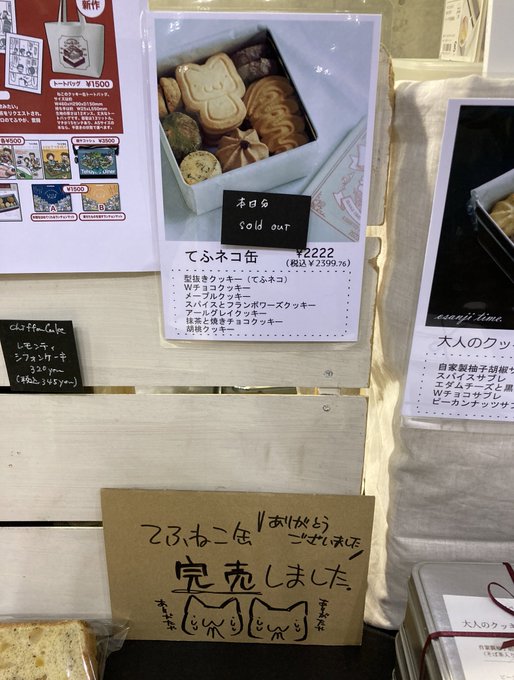 新作
トートバッグ ¥1500
ねこのクッキー缶トートバッグ。
¥500
¥3500
¥1500
A
B
本日分
sold out
てふネコ缶
¥2222
(税込￥2399.76)
型抜きクッキー（てふネコ）
Wチョコクッキー
メープルクッキー
スパイスとフランボワーズクッキー
アールグレイクッキー
抹茶と焼きチョコクッキー
胡桃クッキー
chiffon Cake
レモンティ
シフォンケーキ
320yen
(税込345yen)
osanji time.
大人のクッ
自家製柚子胡椒サ
スパイスサブレ
エダムチーズと黒
Wチョコサブレ
ピーカンナッツサブ
てふねこ缶
ありがとう
ございました
完売しました。
大人のクッキ
自家製柚子胡